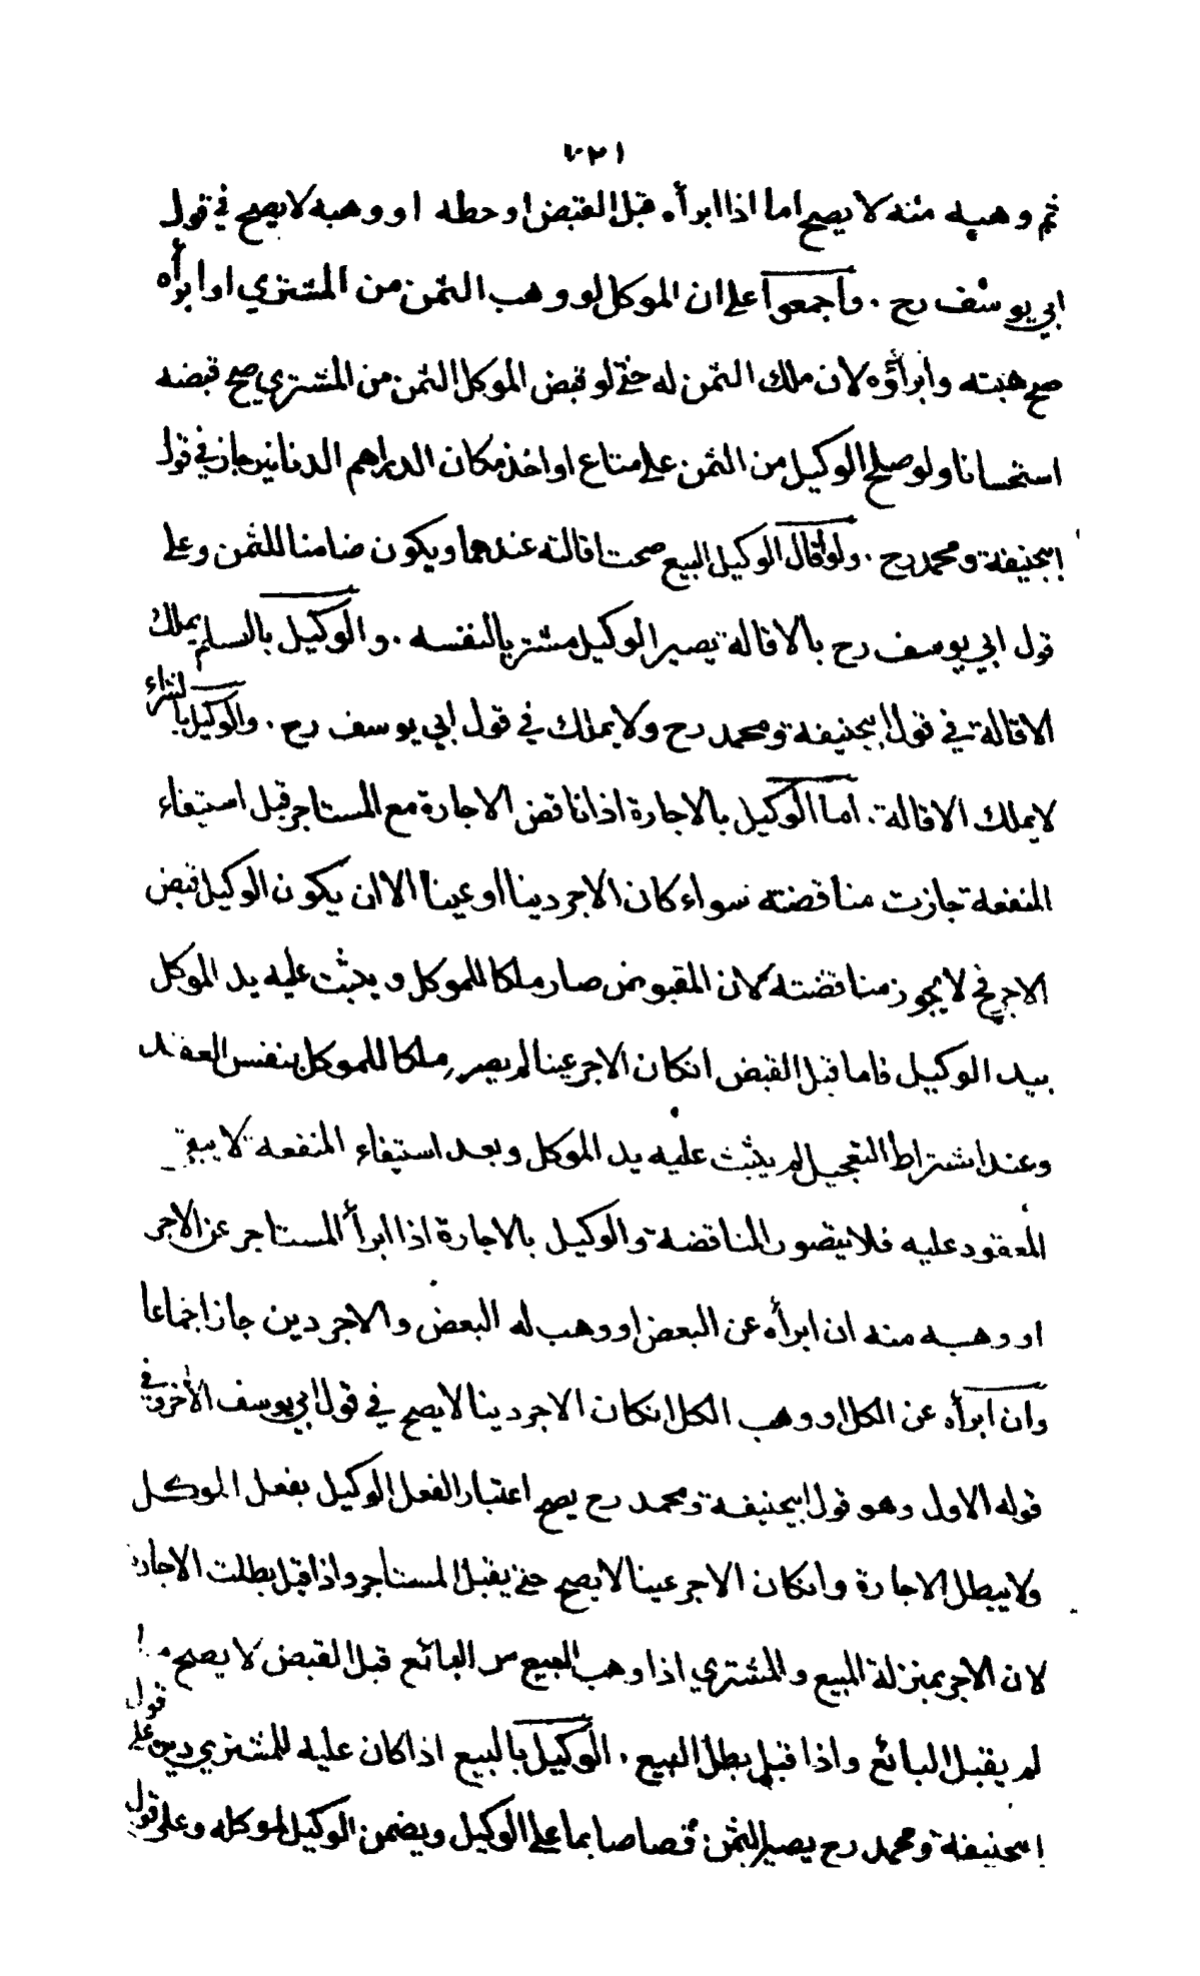 ١٠٢١
ثم وهبه منه لا يصح اما اذا ابرأه قبل القبض او حطه او وهبه لا يصح في قول
ابي يوسف رح . واجمعوا على ان الموكل لو وهب الثمن من المشتري او ابرأه
صح هبته وابراؤه لان ملك الثمن له حتى لو قبض الموكل الثمن من المشتري صح قبضه
استحسانا ولو صلح الوكيل من الثمن على متاع او اخذ مكان الدراهم الدنانير جاز في قول
ابيحنيفة ومحمد رح . ولو اقال الوكيل البيع صحت اقالته عندهما ويكون ضامنا للثمن وعلى
قول ابي يوسف رح بالاقالة يصير الوكيل مشتريا لنفسه . والوكيل بالسلم يملك
الاقالة في قول ابيحنيفة ومحمد رح ولا يملك في قول ابي يوسف رح . والوكيل بالشراء
لا يملك الاقالة . اما الوكيل بالاجارة اذا ناقض الاجارة مع المستاجر قبل استيفاء
المنفعة جازت مناقضته سواء كان الاجر دينا او عينا الا ان يكون الوكيل قبض
الاجر فح لا يجوز مناقضته لان المقبوض صار ملكا للموكل ويثبت عليه يد الموكل
بيد الوكيل فاما قبل القبض انكان الاجر عينا لم يصر ملكا للموكل بنفس العقد
وعند اشتراط التعجيل لم يثبت عليه يد الموكل وبعد استيفاء المنفعة لا يبقى
المعقود عليه فلا يتصور المناقضة والوكيل بالاجارة اذا ابرأ المستاجر عن الاجر
او وهبه منه ان ابرأه عن البعض او وهب له البعض والاجر دين جاز اجماعا
وان ابرأه عن الكل او وهب الكل انكان الاجر دينا لا يصح في قول ابي يوسف الآخر وفي
قوله الاول وهو قول ابيحنيفة ومحمد رح يصح اعتبارا لفعل الوكيل بفعل الموكل
ولا يبطل الاجارة وانكان الاجر عينا لا يصح حتى يقبل المستاجر واذا قبل بطلت الاجارة
لان الاجر بمنزلة المبيع والمشتري اذا وهب المبيع من البائع قبل القبض لا يصح ما
لم يقبل البائع واذا قبل بطل البيع . الوكيل بالبيع اذا كان عليه للمشتري دين على قول
ابيحنيفة ومحمد رح يصير الثمن قصاصا بما على الوكيل ويضمن الوكيل لموكله وعلى قول